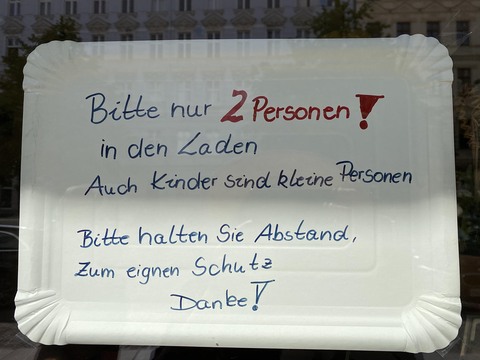 Bitte nur 2 Personen!
in den Laden
Auch Kinder sind kleine Personen
Bitte halten Sie Abstand,
Zum eignen Schutz
Danke!